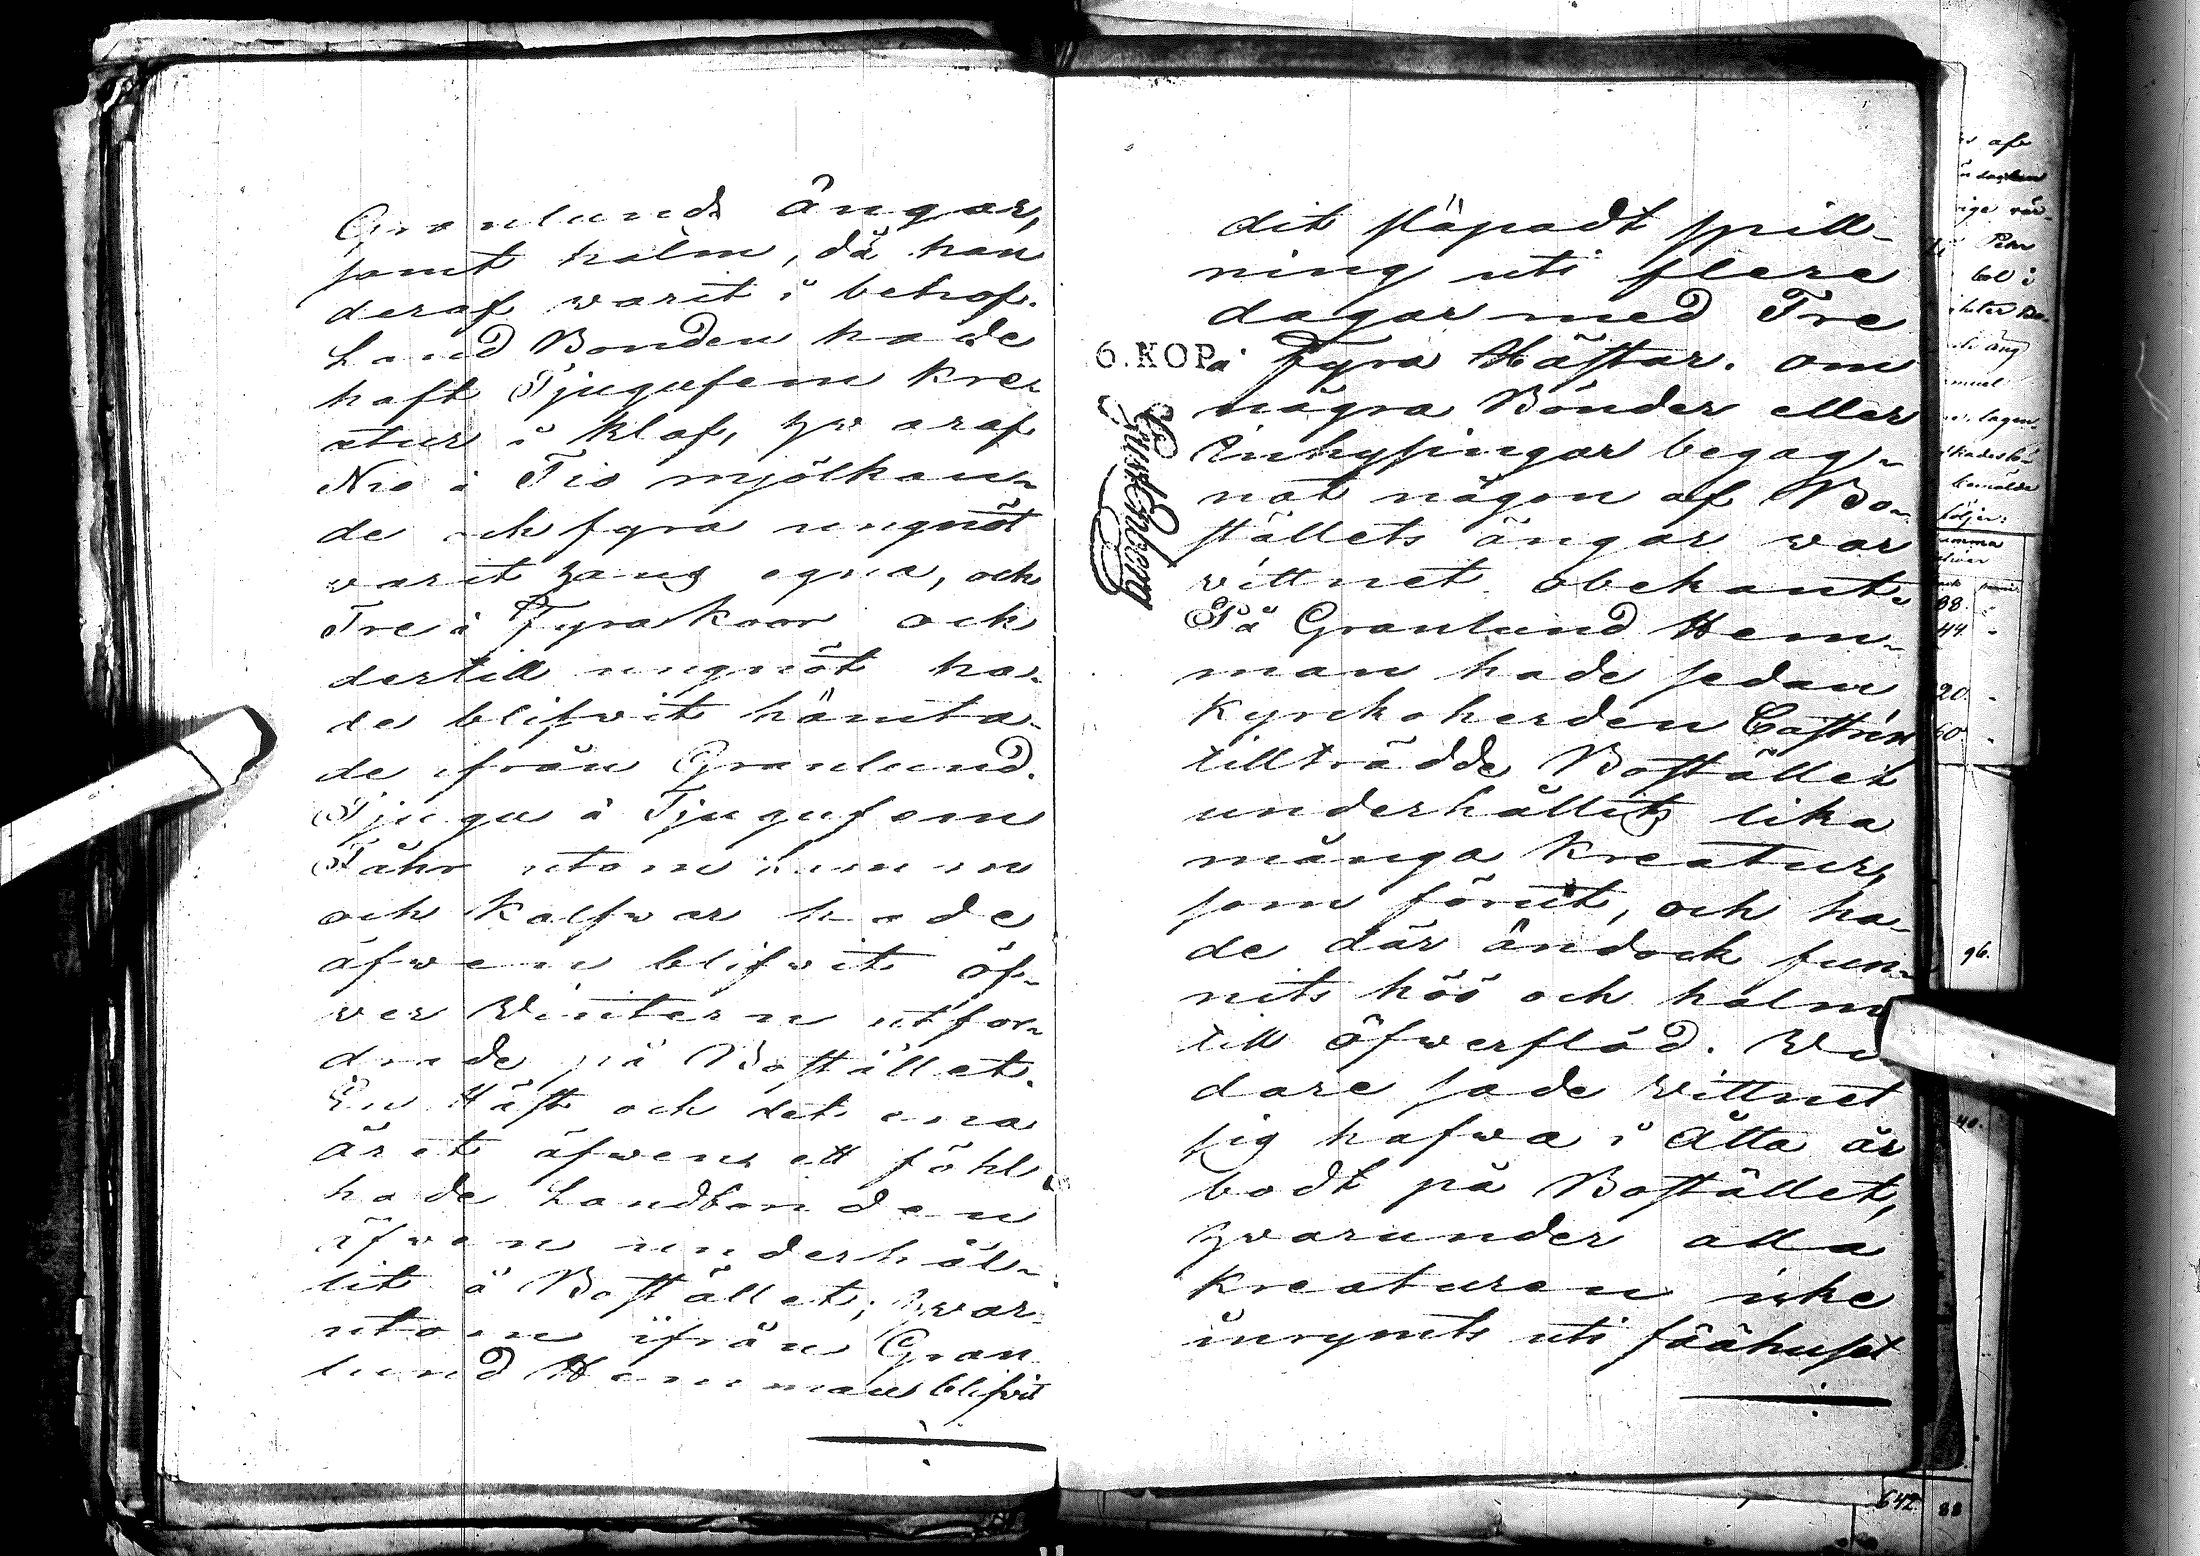 Granlunds ängar,
samt halm, då han
deraf warit i behof.
Land Bonden hade
haft Tjugufem kre-
atur i klaf, hwaraf
Nio à Tio mjölkan-
de och fyra ungnöt
warit hans egna, och
Tre à Fyra koor och
dertill ungnöt ha-
de blifwit hämta-
de ifrån Granlund.
Tjugu à Tjugufem
Fåhr utom lam
och Kalfwar hade
äfwen blifwit öf-
wer Wintern utfor-
drade på Bostället.
En Häst och det ena
året äfwen ett föhl
hade Landbonden
äfwen underhål-
lit å Bostället; hwar-
utom ifrån Gran
lund Hemman blifvit
dit släpadt spill-
ning uti flere
dagar med Tre
6.KOP.
à Fyra Hästar. om
några Bönder eller
Inhysingar begag-
nat någon af Bo-
ställets ängar war
vittnet obekant.
På Granlund Hem-
man hade sedan
Kyrkoherden Castrén
tillträdde Bostället
underhållits lika
många Kreatur,
som förut, och ha-
de där ändock fun-
nits höö och halm
till öfwerflöd. Wi-
dare sade vittnet
sig hafwa i Åtta år
bodt på Bostället,
hwarunder alla
Kreaturen icke
inrymts uti fäähuset
96.
40.
642 88